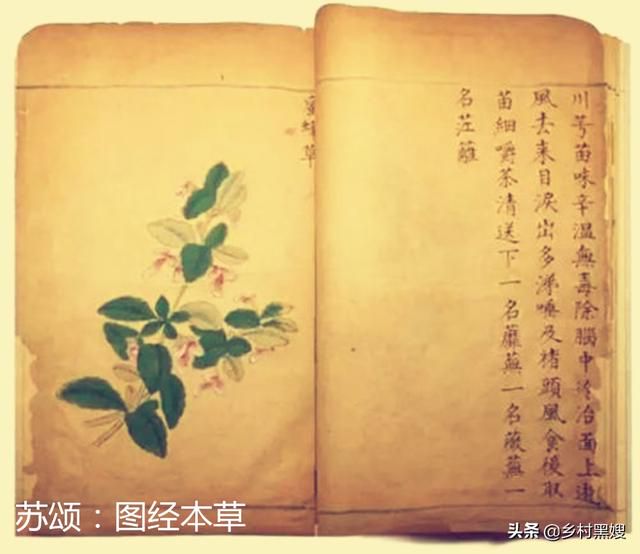 川芎苗味辛温無毒除腦中冷治面上
風去来目淚出多涕唾及頭風食後取
苗細嚼茶清送下一名蘼蕪一名薇蕪一
名茳蘺
蜜蜂草
苏颂：图经本草
头条@乡村黑嫂